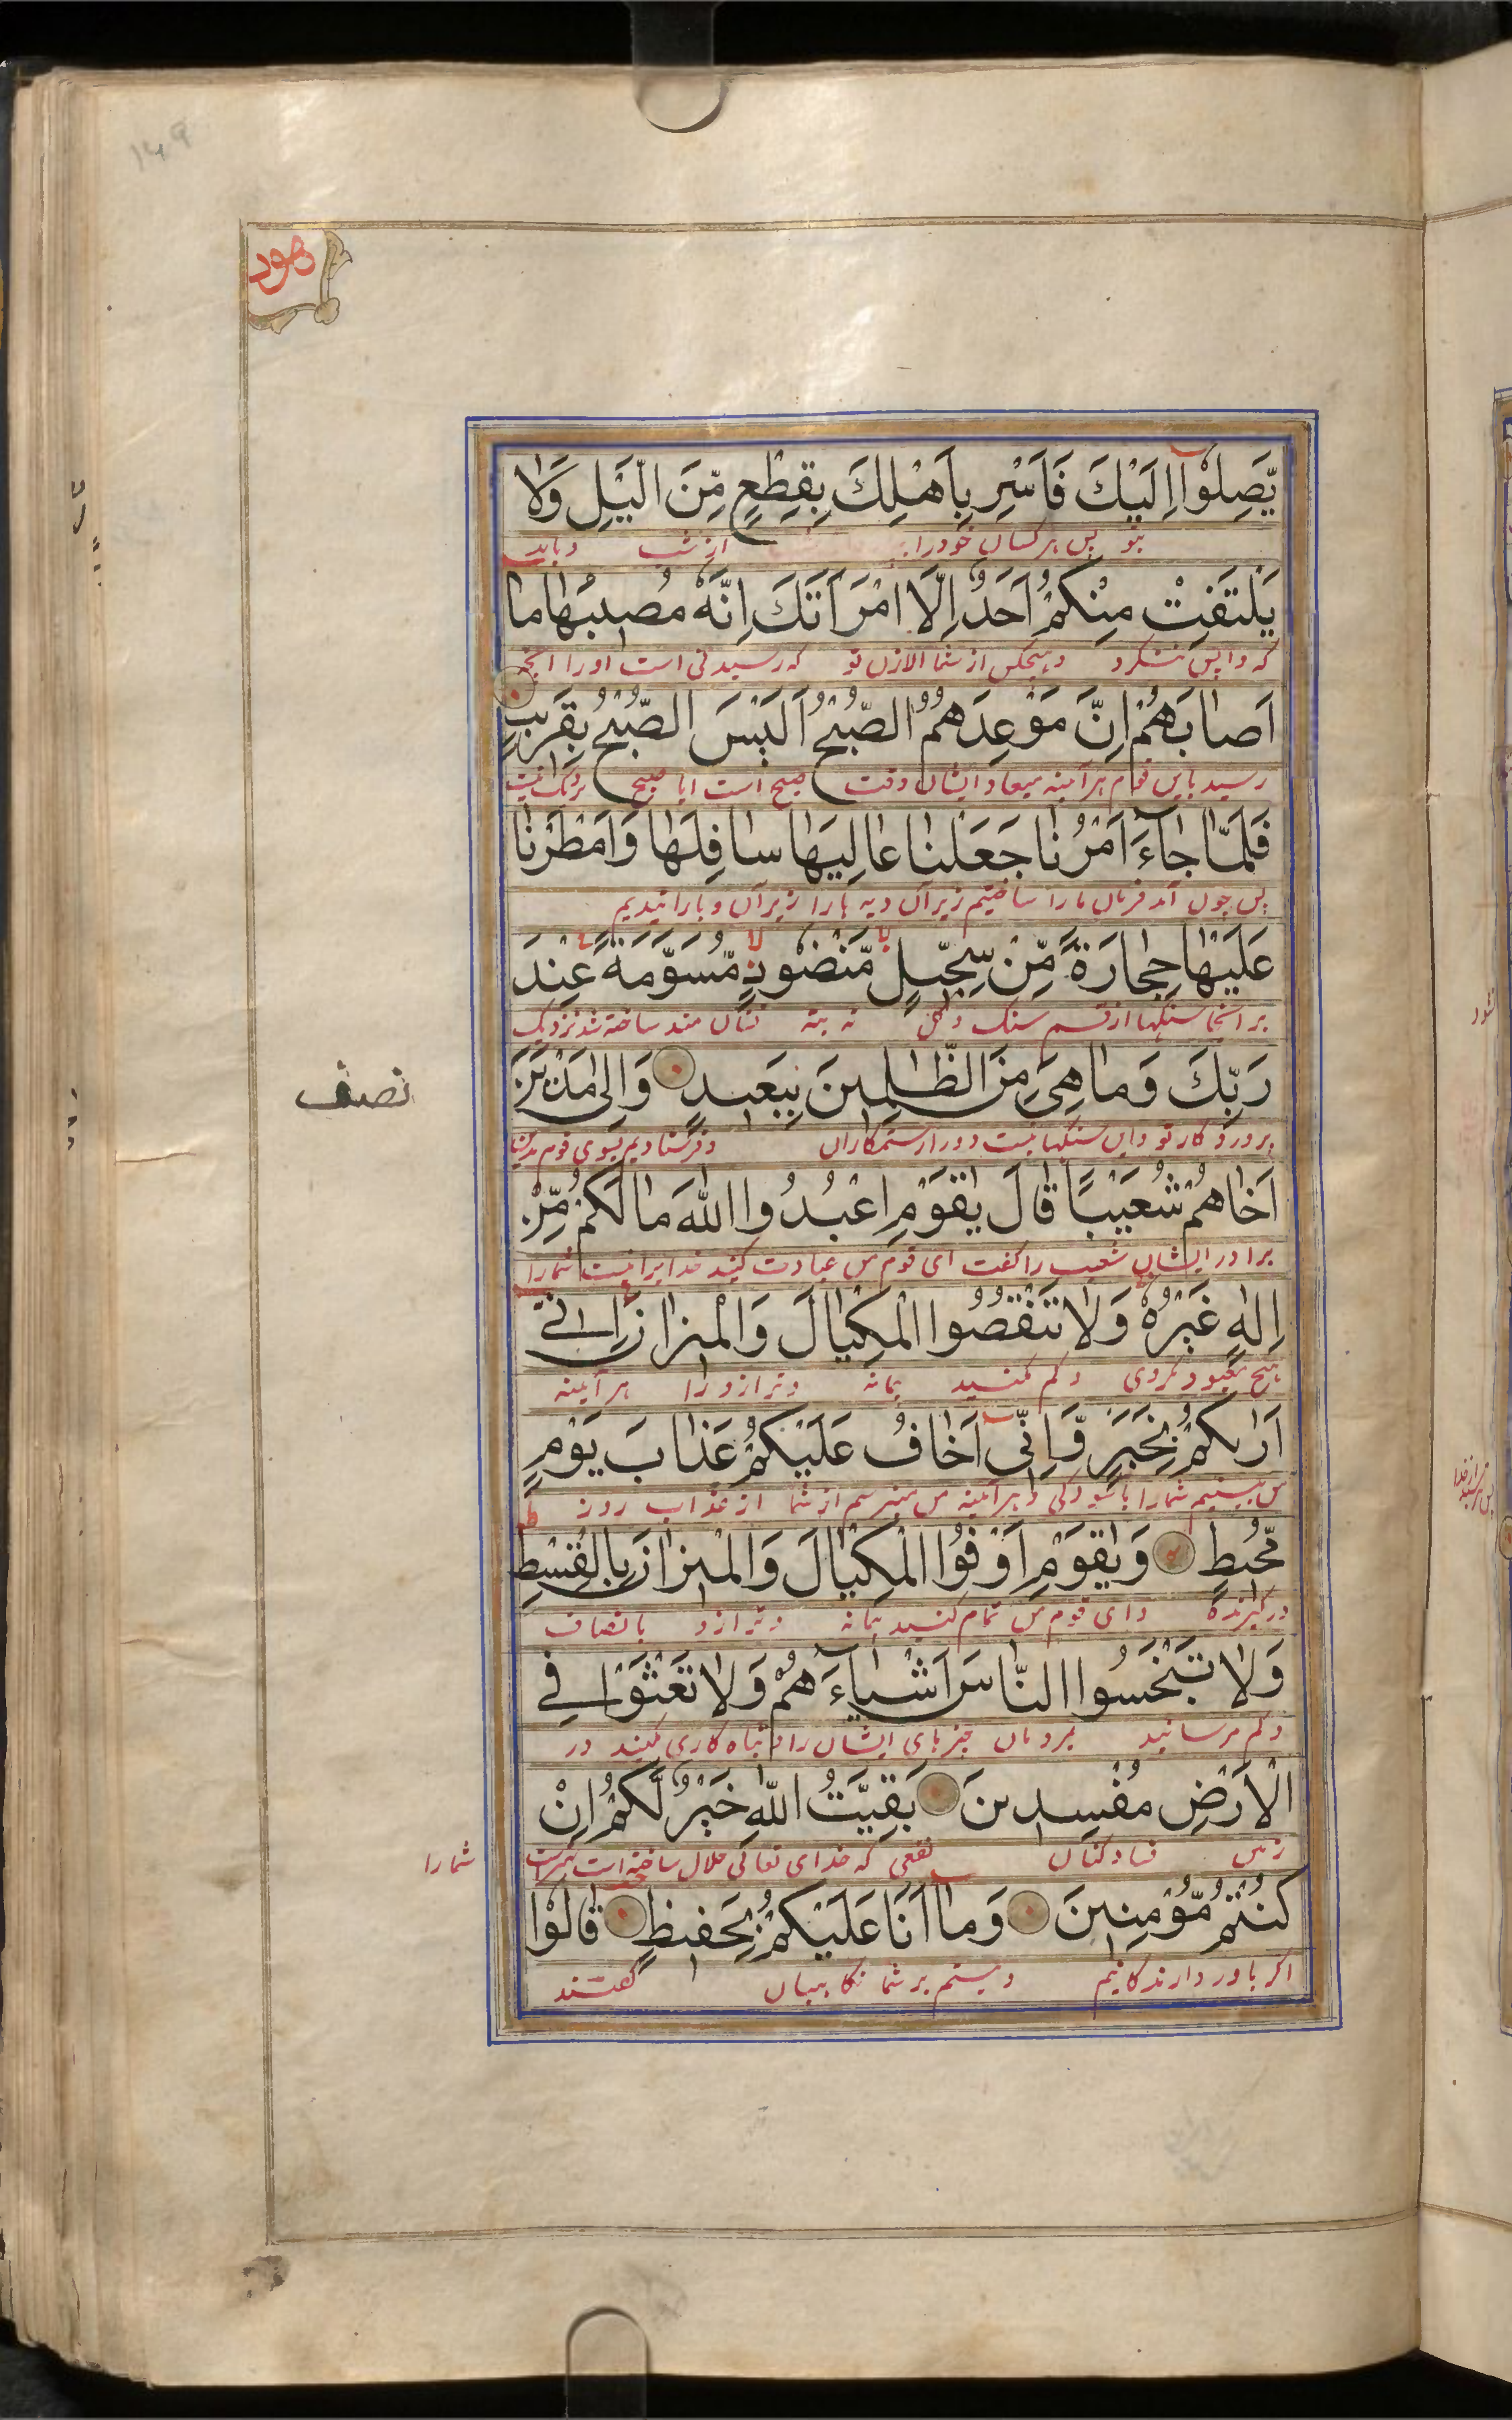 ۱۴۹
هود
يَّصِلُوْۤا اِلَيْكَ فَاَسْرِ بِاَهْلِكَ بِقِطْعٍ مِّنَ الَّيْلِ وَلَا
بتو پس ببر کسان خودرا از شب و باید
يَلْتَفِتْ مِنْكُمْ اَحَدٌ اِلَّا امْرَاَتَكَ اِنَّهٗ مُصِيْبُهَا مَا
که واپس ننگرد و هیچکس از شما الا زن تو که رسیدنی است او را آنچه
اَصَابَهُمْ اِنَّ مَوْعِدَهُمُ الصُّبْحُ اَلَيْسَ الصُّبْحُ بِقَرِيْبٍ
رسید باین قوم هر آینه میعاد ایشان وقت صبح است ایا صبح نزدیک نیست
فَلَمَّا جَآءَ اَمْرُنَا جَعَلْنَا عَالِيَهَا سَافِلَهَا وَاَمْطَرْنَا
پس چون آمد فرمان ما را ساختیم زیر آن دیه ها را زبر آن و بارانیدیم
عَلَيْهَا حِجَارَةً مِّنْ سِجِّيْلٍ مَّنْضُوْدٍ مُّسَوَّمَةً عِنْدَ
بر آنجا سنگها از قسم سنگ و گل ته بته نشان مند ساخته شد نزدیک
رَبِّكَ وَمَا هِيَ مِنَ الظّٰلِمِيْنَ بِبَعِيْدٍ وَاِلٰى مَدْيَنَ
نصف
پروردگار تو و این سنگها نیست دور از ستمکاران و فرستادیم بسوی قوم مدین
اَخَاهُمْ شُعَيْبًا قَالَ يٰقَوْمِ اعْبُدُوا اللّٰهَ مَا لَكُمْ مِّنْ
برادر ایشان شعیب را گفت ای قوم من عبادت کنید خدا یرا نیست شما را
اِلٰهٍ غَيْرُهٗ وَلَا تَنْقُصُوا الْمِكْيَالَ وَالْمِيْزَانَ اِنِّيْ
هیچ معبود بجز وی و کم مکنید پیمانه و ترازو را هر آینه
اَرٰىكُمْ بِخَيْرٍ وَّاِنِّيْۤ اَخَافُ عَلَيْكُمْ عَذَابَ يَوْمٍ
من بینیم شما را باسودگی و هر آینه من میترسم از شما از عذاب روز
مُّحِيْطٍ وَيٰقَوْمِ اَوْفُوا الْمِكْيَالَ وَالْمِيْزَانَ بِالْقِسْطِ
در گیرنده و ای قوم من تمام کنید پیمانه و ترازو بانصاف
وَلَا تَبْخَسُوا النَّاسَ اَشْيَآءَهُمْ وَلَا تَعْثَوْا فِي
و کم مرسانید بمردمان چیزهای ایشان را و تباه کاری مکنید در
الْاَرْضِ مُفْسِدِيْنَ بَقِيَّتُ اللّٰهِ خَيْرٌ لَّكُمْ اِنْ
زمین فساد کنان نفعی که خدای تعالی حلال ساخته است بهتر است شما را
كُنْتُمْ مُّؤْمِنِيْنَ وَمَاۤ اَنَا عَلَيْكُمْ بِحَفِيْظٍ قَالُوْا
اگر باور دارندگانیم و نیستم بر شما نگاهبان گفتند